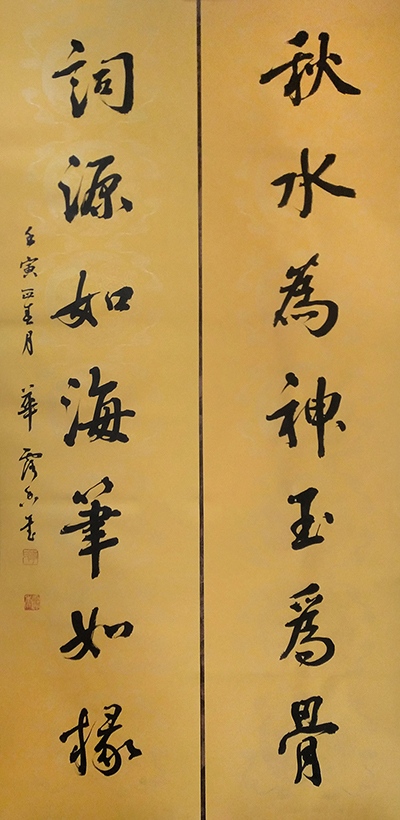 秋水為神玉為骨
詞源如海筆如椽
壬寅正春月 華